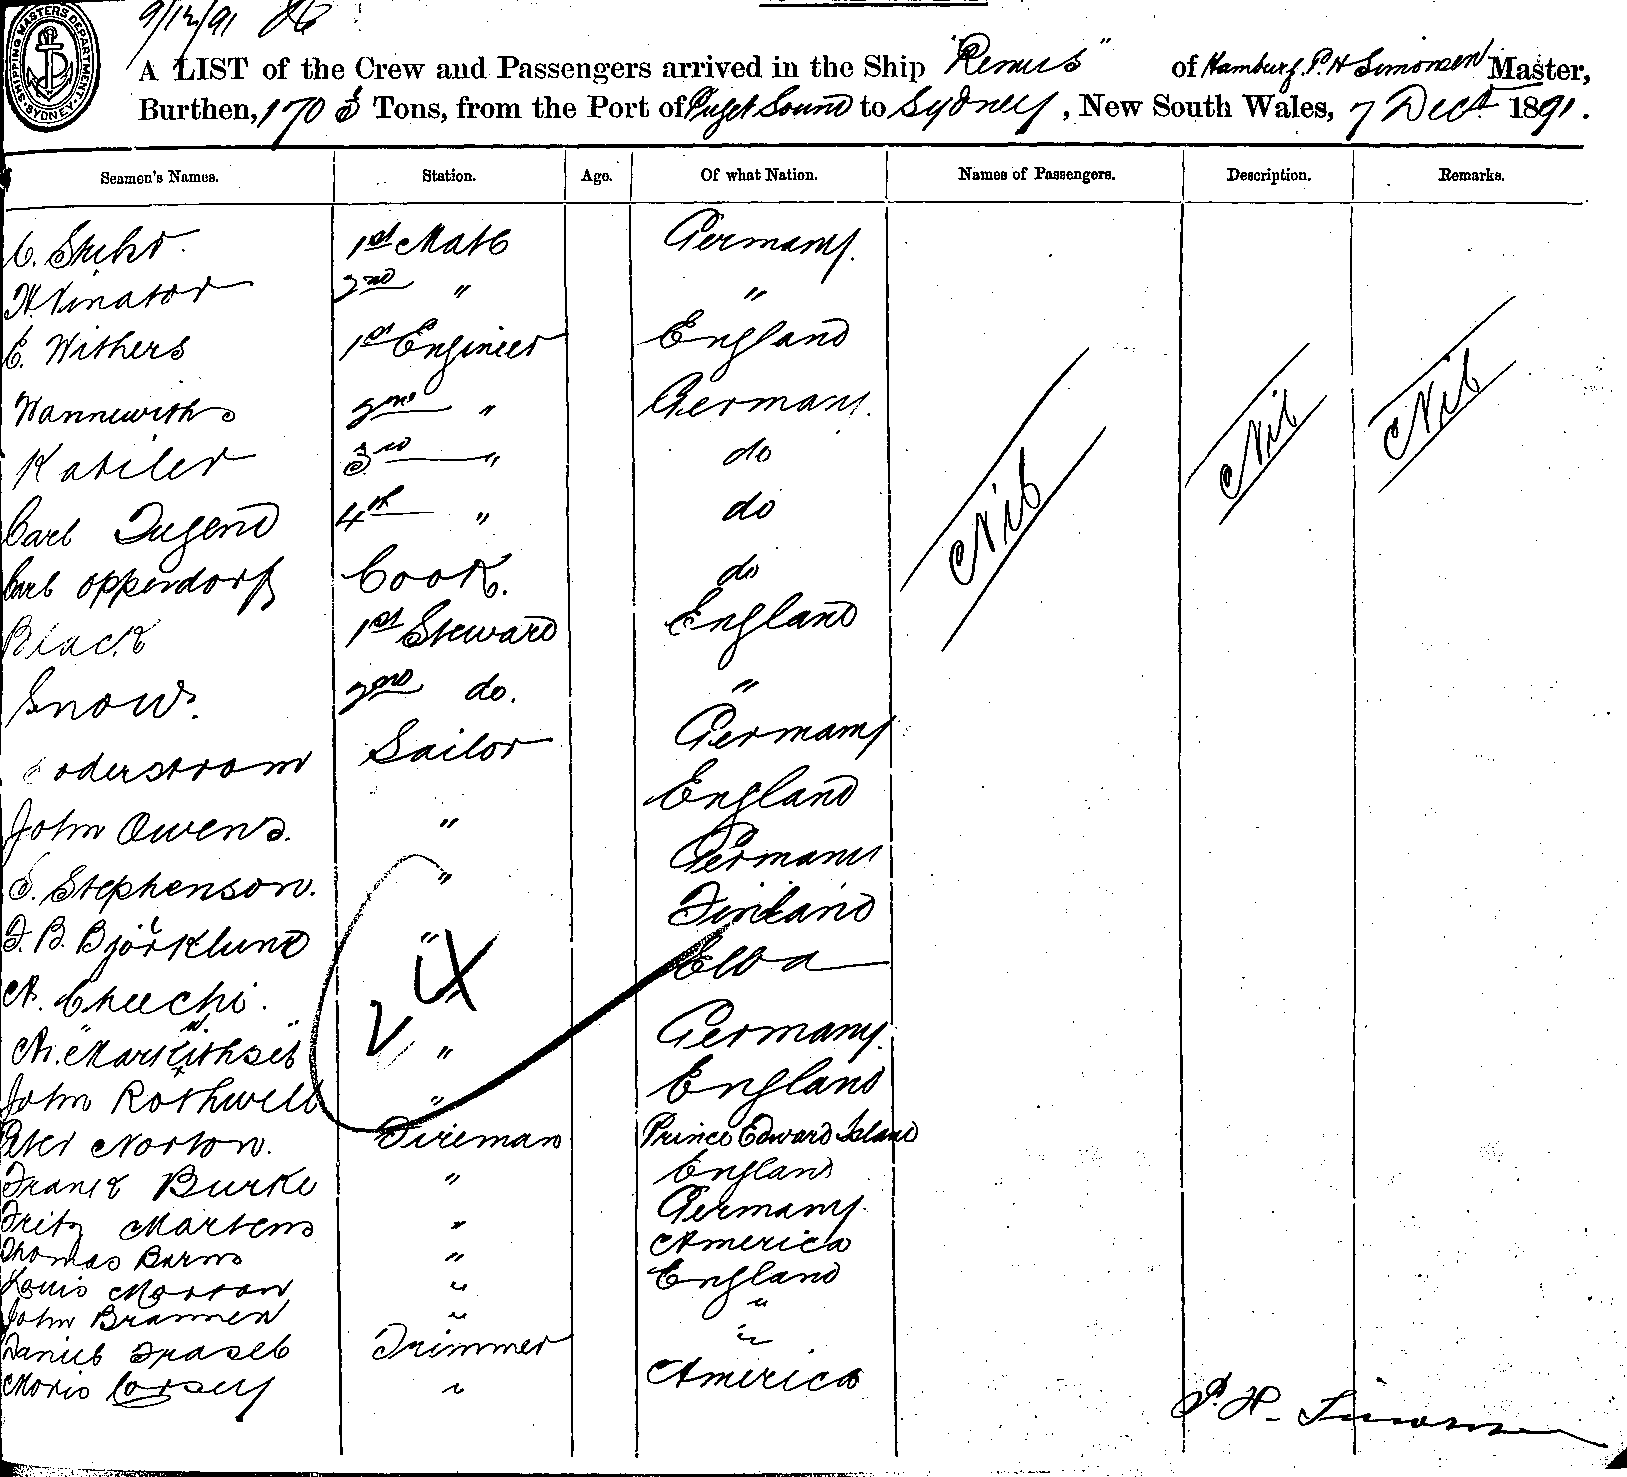 9/12/91
SHIPPING MASTERS DEPARTMENT SYDNEY
A LIST of the Crew and Passengers arrived in the Ship "Remus" of Hamburg, P. H Simonsen Master,
Burthen, 1705 Tons, from the Port of Puget Sound to Sydney, New South Wales, 7 Dect 1891.
Seamen's Names. Station. Age. Of what Nation. Names of Passengers. Description. Remarks.
C. Stuhr 1st Mate Germany.
H. Vinator 2nd " "
E. Withers 1st Engineer England
Wannewiths 2nd " Germany.
Katiler 3rd " do
Carl Tugend 4th " do
Carl Oppendorf Cook. do
Black 1st Steward England
Snow. 2nd do. "
Soderstrom Sailor Germany
John Owens. " England
S. Stephenson. " Germany
F. B. Björklund " Finland
A. Cheechi. Elba
" Germany.
John Rothwell " England
Peter Norton. Fireman Prince Edward Island
Frank Burke " England
Fritz Martens " Germany.
Thomas Barns " America
Louis Morran " England
John Brannen " "
Daniel Fraser Trimmer "
Moris Corsey " America
Nil Nil Nil
P. H. Simonsen